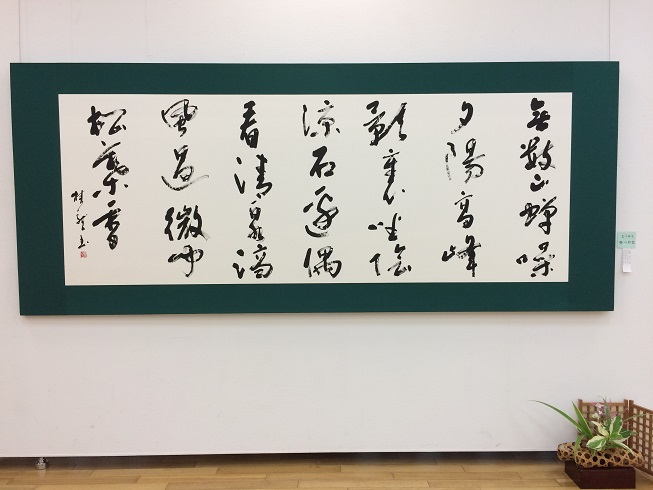 無數山蟬噪
夕陽高峰
影裏坐陰
涼石邊偶
看清泉滴
風過微聞
松葉香